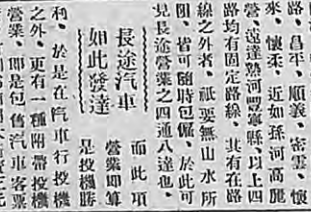 路、昌平、順義、密雲、懷
來、懷柔、近如孫河高麗
營、遠達熱河豐寧縣、以上四
路均有固定路線、其有在路
線之外者、祇要無山水所
阻、皆可隨時包僱、於此可
見長途營業之四通八達也、
長途汽車
如此發達
而此項
營業即算
是投機勝
利、於是在汽車行投機
之外、更有一種附帶投機
營業、即是包售汽車客票